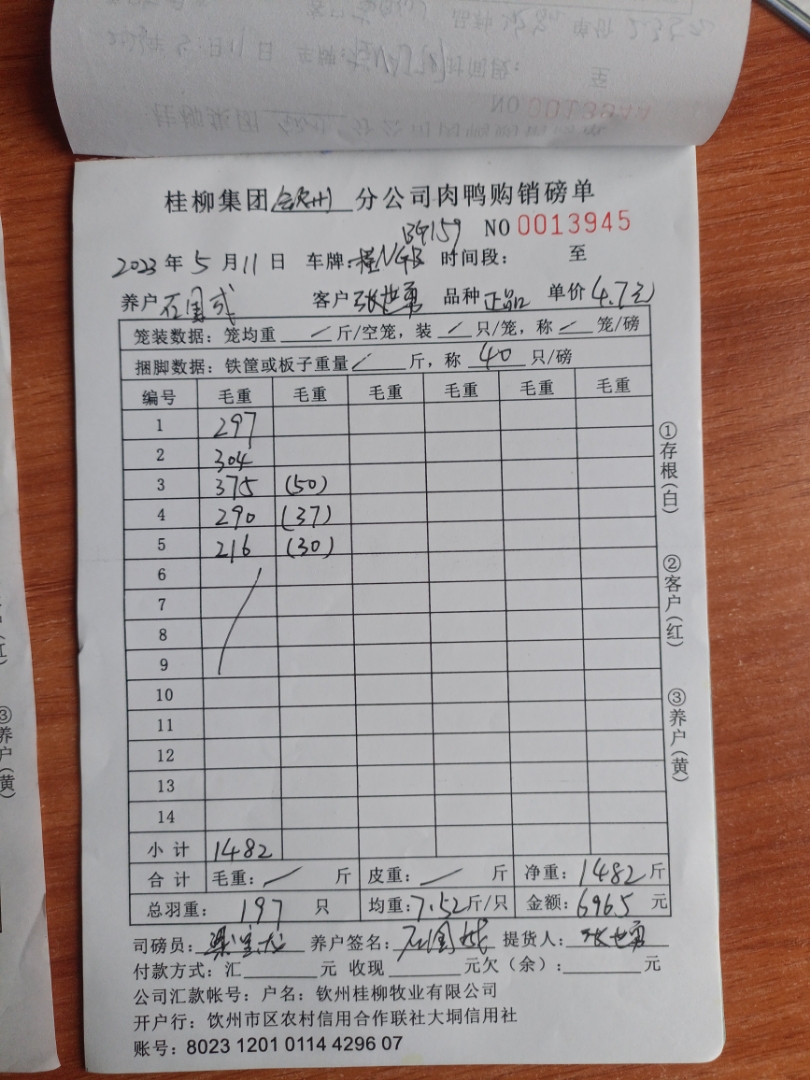 桂柳集团 钦州 分公司肉鸭购销磅单
NO 0013945
2023年5月11日 车牌:桂NGB B9159 时间段: 至
养户 石国武 客户 张世勇 品种 正品 单价 4.7元
笼装数据: 笼均重 / 斤/空笼, 装 / 只/笼, 称 / 笼/磅
捆脚数据: 铁筐或板子重量 / 斤, 称 40 只/磅
编号 毛重 毛重 毛重 毛重 毛重 毛重
1 297
2 304
3 375 (50)
4 290 (37)
5 216 (30)
6
7
8
9
10
11
12
13
14
小计 1482
合计 毛重: / 斤 皮重: / 斤 净重: 1482斤
总羽重: 197 只 均重: 7.52斤/只 金额: 6965 元
司磅员: 养户签名: 提货人: 张世勇
付款方式: 汇 元 收现 元欠(余): 元
公司汇款帐号: 户名: 钦州桂柳牧业有限公司
开户行: 钦州市区农村信用合作联社大垌信用社
账号: 8023 1201 0114 4296 07
①存根(白)
②客户(红)
③养户(黄)
③养户(黄)